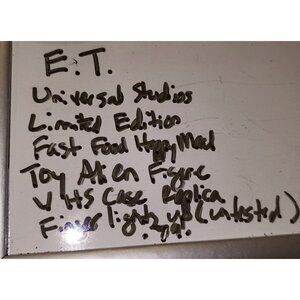 E.T.
Universal Studios
Limited Edition
Fast Food Happy Meal
Toy Alien Figure
VHS Case Replica
Finger lights up (untested)